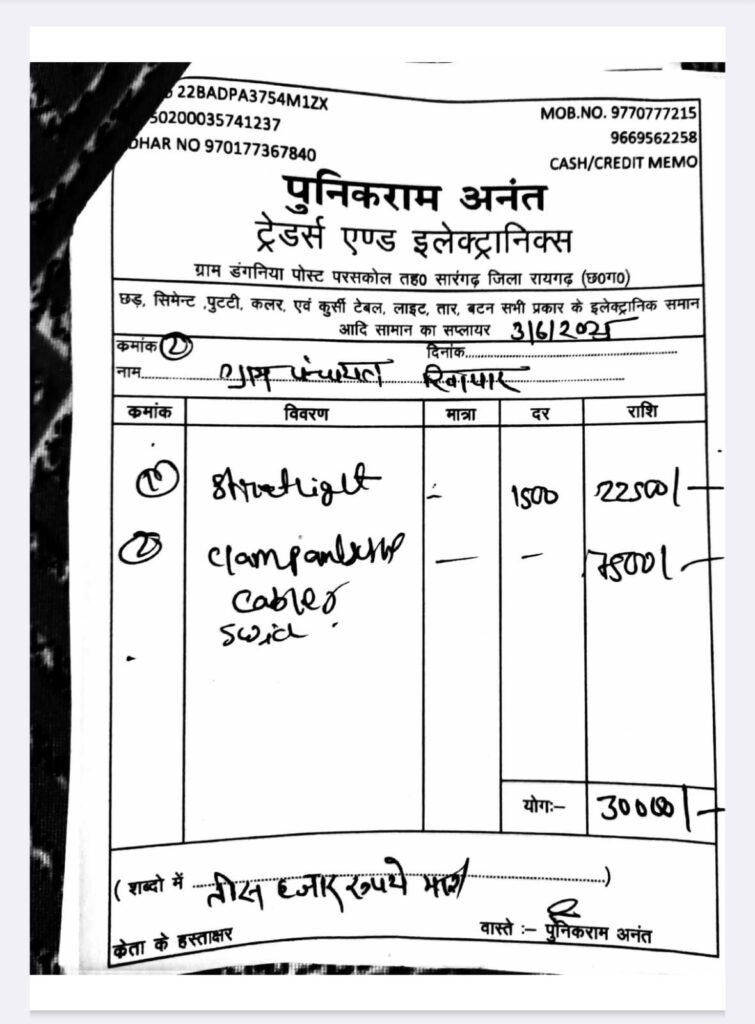 22BADPA3754M1ZX
50200035741237
DHAR NO 970177367840
MOB.NO. 9770777215
9669562258
CASH/CREDIT MEMO
पुनिकराम अनंत
ट्रेडर्स एण्ड इलेक्ट्रानिक्स
ग्राम डंगनिया पोस्ट परसकोल तह0 सारंगढ़ जिला रायगढ़ (छ0ग0)
छड़, सिमेन्ट ,पुटटी, कलर, एवं कुर्सी टेबल, लाइट, तार, बटन सभी प्रकार के इलेक्ट्रानिक समान
आदि सामान का सप्लायर 3/6/2025
कमांक 2 दिनांक
नाम ग्राम पंचायत
कमांक विवरण मात्रा दर राशि
1 1500 22500/-
2 - - 7500/-
cables
योगः- 30000/-
( शब्दो में तीस हजार रूपये मात्र )
वास्ते :- पुनिकराम अनंत
केता के हस्ताक्षर